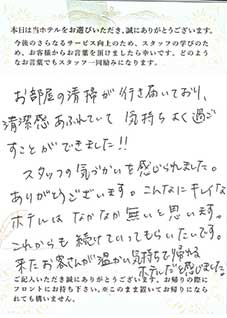 本日は当ホテルをお選びいただき、誠にありがとうございます。
今後のさらなるサービス向上のため、スタッフの学びのため、お客様からお言葉を頂けましたら幸いです。どのようなお言葉でもスタッフ一同励みになります。
お部屋の清掃が行き届いており、
清潔感あふれていて 気持ちよく過ご
すことができました!!
スタッフの気づかいを感じられました。
ありがとうございます。こんなにキレイな
ホテルは なかなか無いと思います。
これからも 続けていってもらいたいです。
来たお客さんが温かい気持ちで帰れる
ホテルだと感じました。
ご記入いただき誠にありがとうございます。お帰りの際に
フロントにお持ち下さい。※このまま置いてお帰りになら
れても構いません。